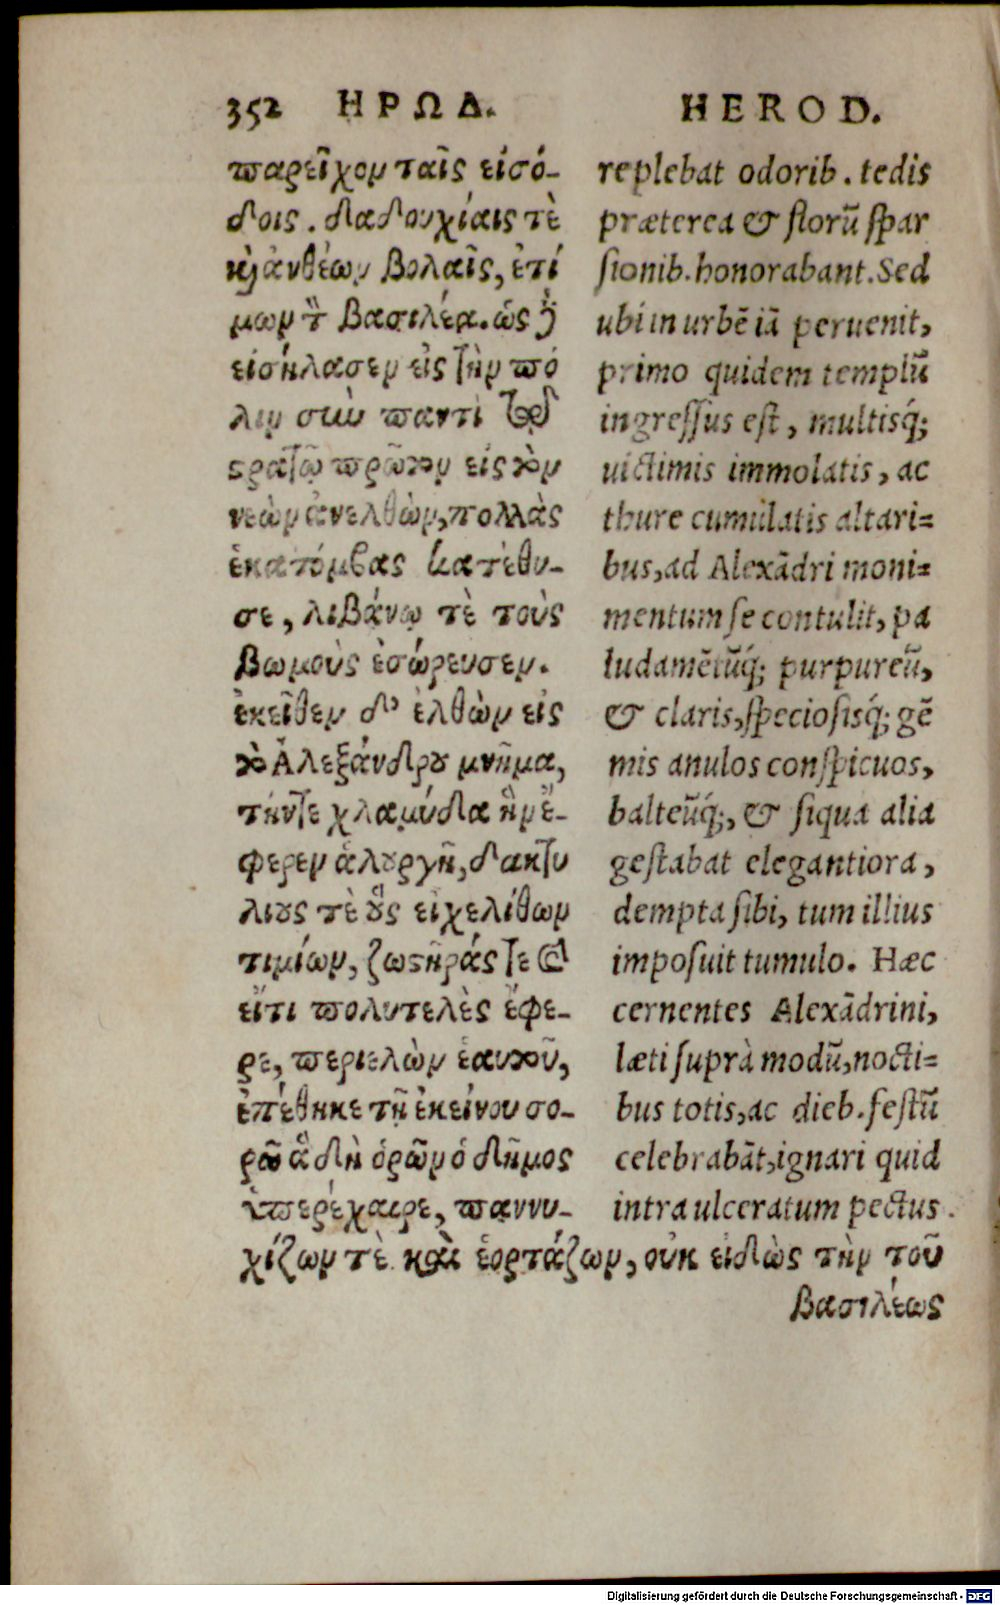 352 ΗΡΩΔ.
παρεῖχον ταῖς εἰσό-
δοις. δαδουχίαις τὲ
κὶ ἀνθέων βολαῖς, ἐτί
μων τ̀ βασιλέα. ὡς δ̀
εἰσήλασεν εἰς τὴν πό
λιν σὺν παντὶ τῷ
στρατῷ πρῶτον εἰς τὸν
νεὼν ἀνελθὼν, πολλὰς
ἑκατόμβας κατέθυ-
σε, λιβάνῳ τὲ τοὺς
βωμοὺς ἐσώρευσεν.
ἐκεῖθεν δ' ἐλθὼν εἰς
τὸ Ἀλεξάνδρου μνῆμα,
τήντε χλαμύδα ἣν ἔ-
φερεν ἁλουργῆ, δακτυ
λίους τὲ οὓς εἶχε λίθων
τιμίων, ζωστῆράς τε καὶ
εἴτι πολυτελὲς ἔφε-
ρε, περιελὼν ἑαυτοῦ,
ἐπέθηκε τῇ ἐκείνου σο-
ρῷ ἃ δὴ ὁρῶν ὁ δῆμος
ὑπερέχαιρε, παννυ-
χίζων τὲ καὶ ἑορτάζων, οὐκ εἰδὼς τὴν τοῦ
βασιλέως
HEROD.
replebat odorib. tedis
præterea & florũ spar
sionib. honorabant. Sed
ubi in urbẽ iã peruenit,
primo quidem templũ
ingressus est, multisq́;
uictimis immolatis, ac
thure cumulatis altari=
bus, ad Alexãdri moni=
mentum se contulit, pa
ludamẽtũq́; purpureũ,
& claris, speciosisq́; gẽ
mis anulos conspicuos,
balteũq́;, & siqua alia
gestabat elegantiora,
dempta sibi, tum illius
imposuit tumulo. Hæc
cernentes Alexãdrini,
læti suprà modũ, nocti=
bus totis, ac dieb. festũ
celebrabãt, ignari quid
intra ulceratum pectus.
Digitalisierung gefördert durch die Deutsche Forschungsgemeinschaft - DFG